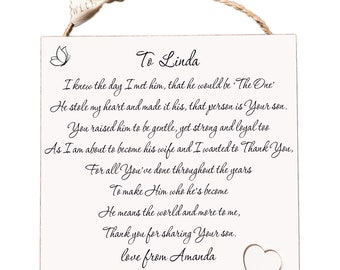 To Linda
I knew the day I met him, that he would be 'The One'
He stole my heart and made it his, that person is Your son.
You raised him to be gentle, yet strong and loyal too
As I am about to become his wife and I wanted to Thank You,
For all You've done throughout the years
To make Him who he's become
He means the world and more to me,
Thank you for sharing Your son.
love from Amanda